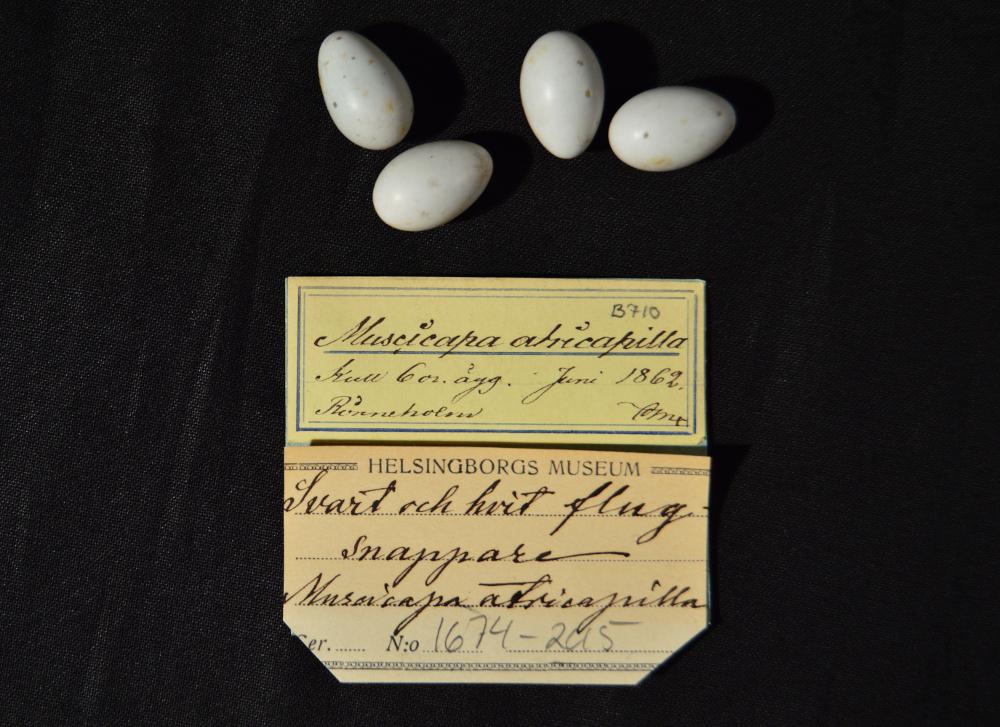 B710
Muscicapa atricapilla
Kull 6 or. ägg. Juni 1862.
Rönneholm
HELSINGBORGS MUSEUM
Svart och hvit flug-
snappare
Muscicapa atricapilla
Ser. ...... N:o 1674-2015